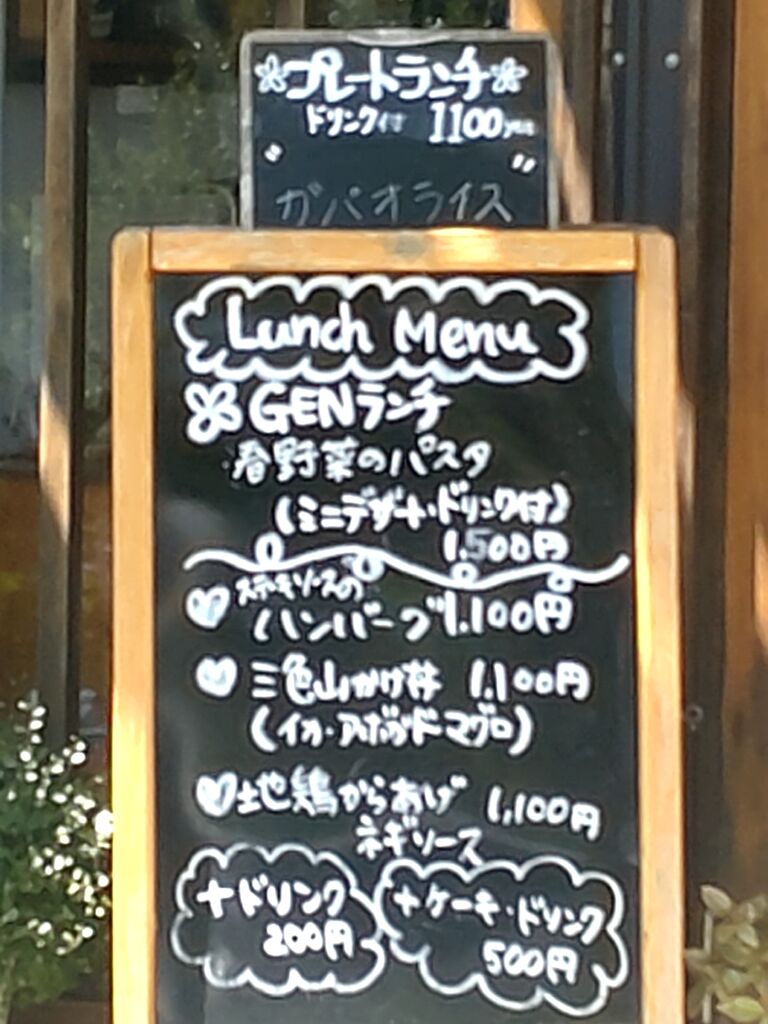 プレートランチ
ドリンク付 1100yen
" "
ガパオライス
Lunch Menu
GENランチ
春野菜のパスタ
(ミニデザート・ドリンク付)
1,500円
ステーキソースの
ハンバーグ 1,100円
三色山かけ丼 1,100円
(イカ・アボカド・マグロ)
地鶏からあげ 1,100円
ネギソース
+ドリンク
200円
+ケーキ・ドリンク
500円